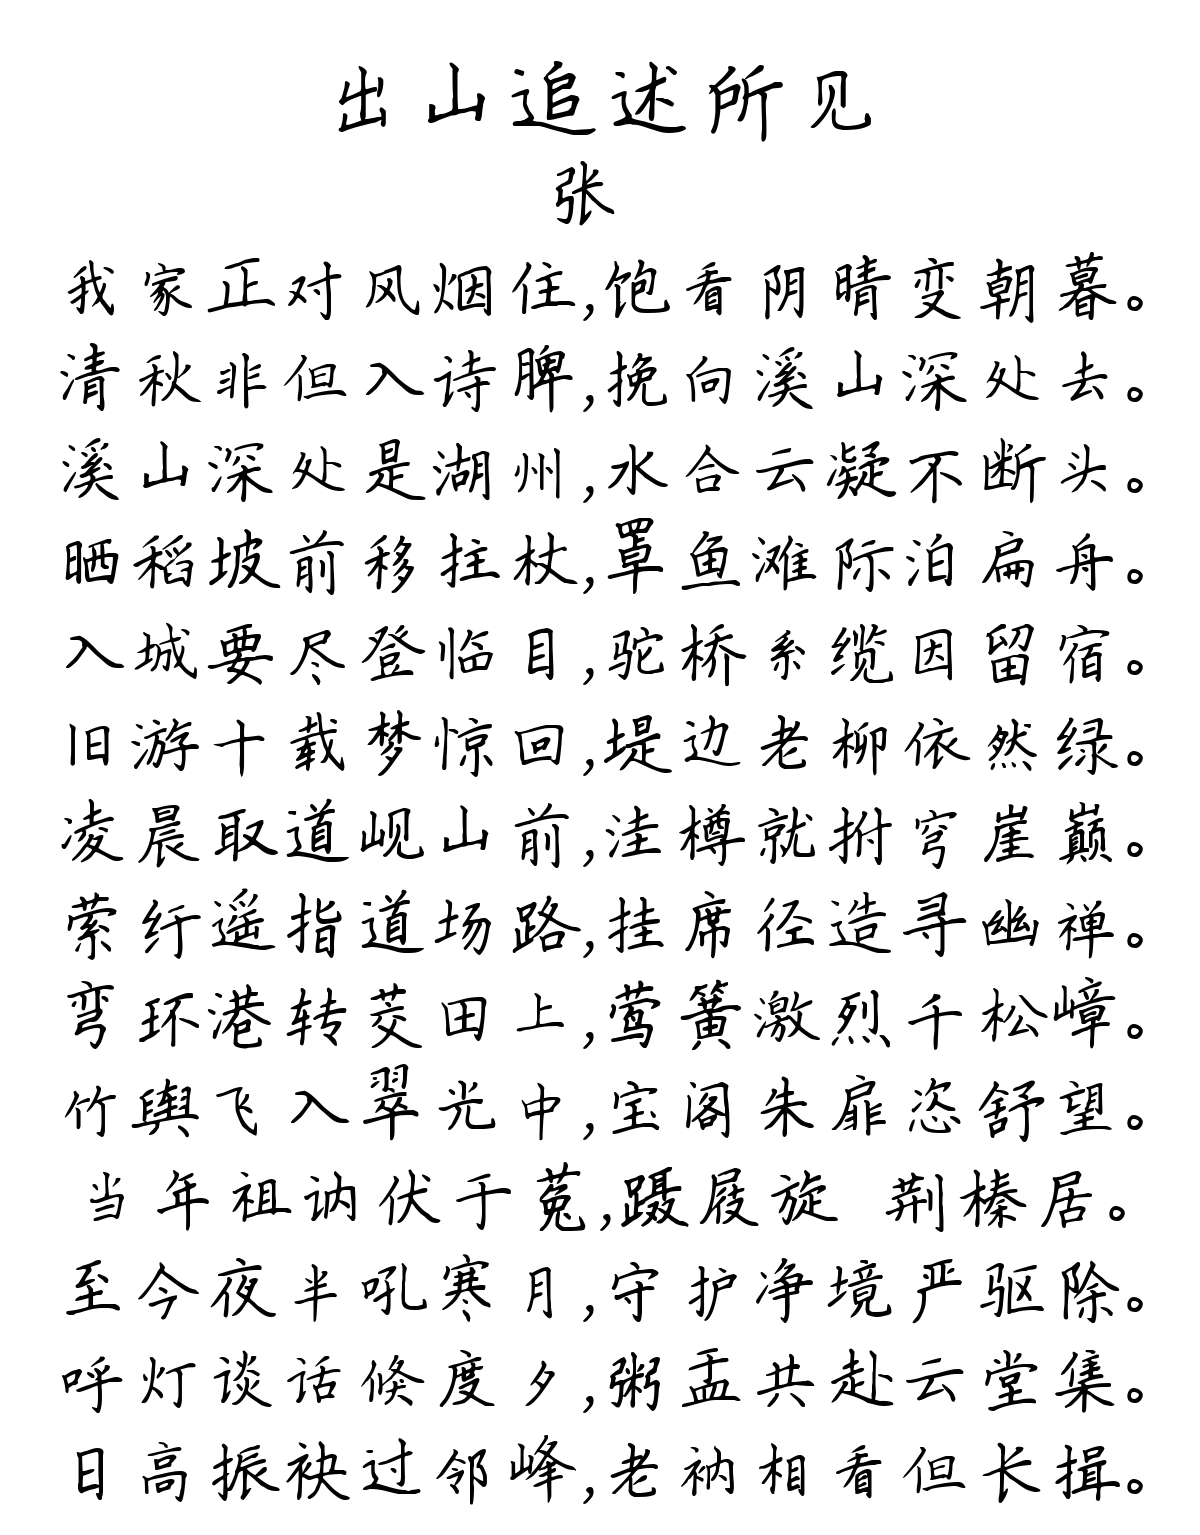 出山追述所见
张
我家正对风烟住,饱看阴晴变朝暮。
清秋非但入诗脾,挽向溪山深处去。
溪山深处是湖州,水合云凝不断头。
晒稻坡前移拄杖,罩鱼滩际泊扁舟。
入城要尽登临目,驼桥系缆因留宿。
旧游十载梦惊回,堤边老柳依然绿。
凌晨取道岘山前,洼樽就拊穹崖巅。
萦纡遥指道场路,挂席径造寻幽禅。
弯环港转茭田上,莺簧激烈千松嶂。
竹舆飞入翠光中,宝阁朱扉恣舒望。
当年祖讷伏于菟,蹑屐旋 荆榛居。
至今夜半吼寒月,守护净境严驱除。
呼灯谈话倏度夕,粥盂共赴云堂集。
日高振袂过邻峰,老衲相看但长揖。